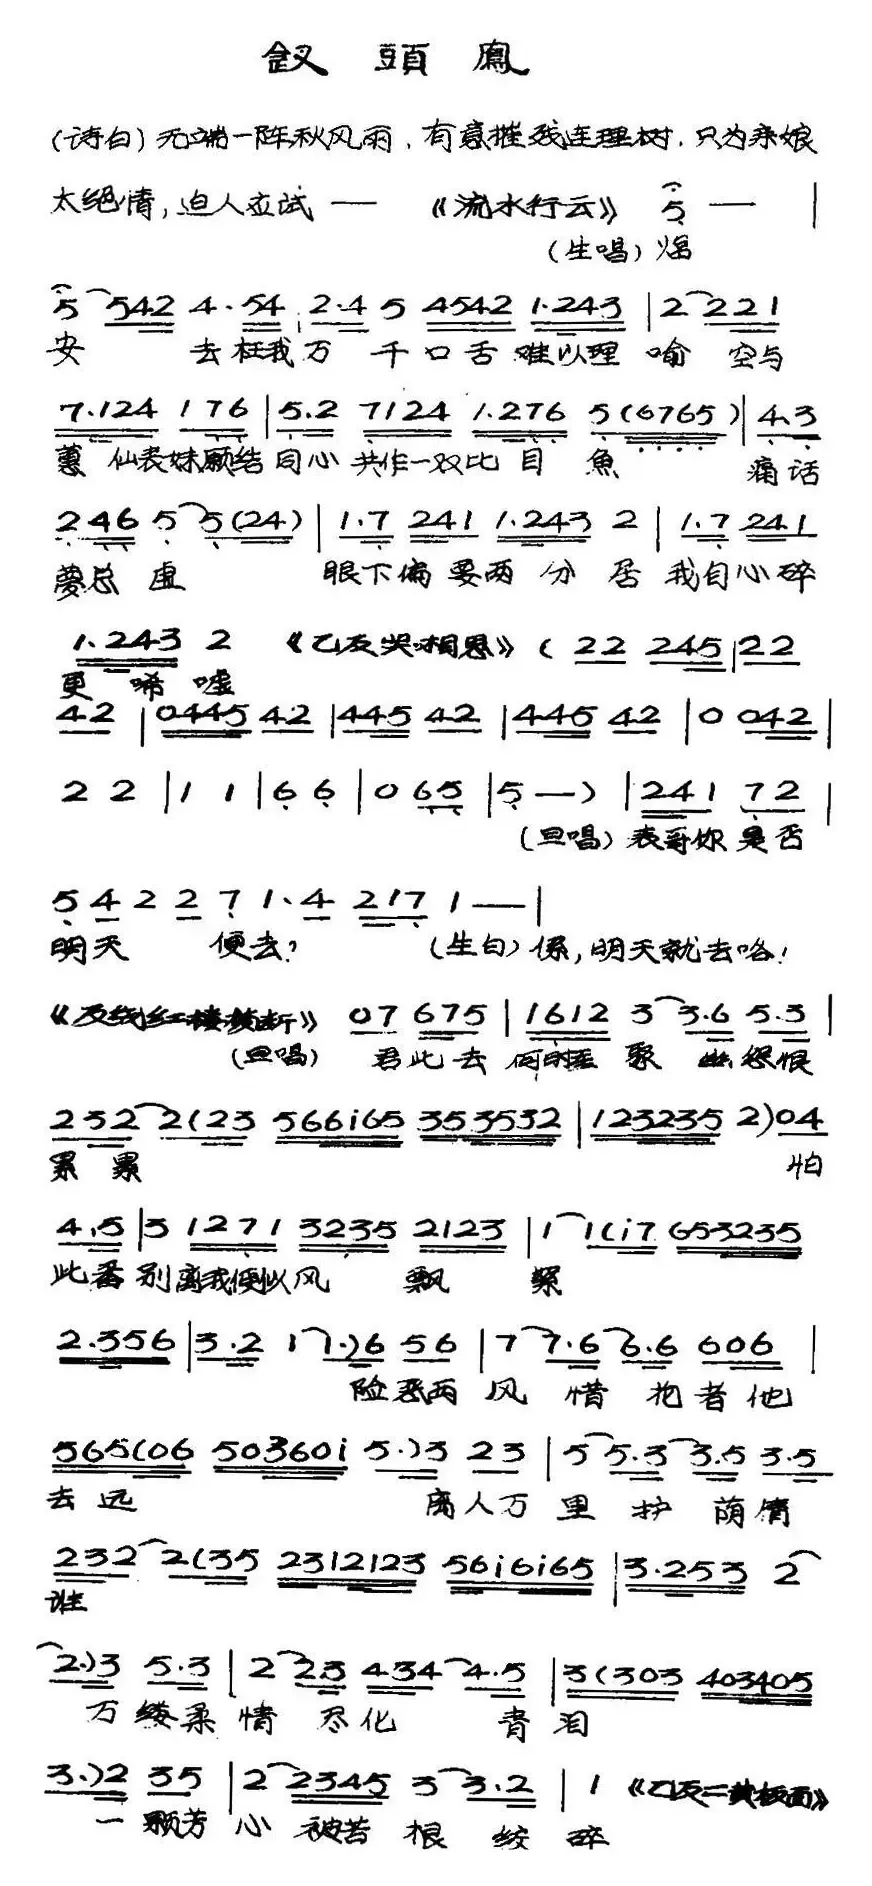 釵頭鳳
(诗白)无端一阵秋风雨,有意摧残连理树.只为亲娘
太绝情,迫人应试 — 《流水行云》 5 — |
(生唱)焰
5 542 4.54 2.4 5 4542 1.243 | 2 221
安 去枉我万 千口舌难以理 喻 空与
7.124 176 | 5.2 7124 1.276 5(6765) | 4.3
蕙 仙表妹願结同心 共作一双比目 魚 痛话
246 5 5(24) | 1.7 241 1.243 2 | 1.7 241
夢总虚 眼下偏要两分居 我自心碎
1.243 2 《乙反哭相思》 ( 22 245 | 22
更唏嘘
42 | 0445 42 | 445 42 | 445 42 | 0 042 |
2 2 | 1 1 | 6 6 | 0 65 | 5 — ) | 241 72 |
(旦唱)表哥你是否
5 4 2 2 7 1.4 217 1 — |
明天 便去? (生白)係,明天就去咯!
《反线红楼 断》 07 675 | 1612 3 3.6 5.3 |
(旦唱) 君此去 何 聚 幽怨恨
232 2(23 566i65 353532 | 123235 2)04
累累 怕
4.5 | 3 1271 3235 2123 | 1 1(i7 653235
此番别离我便似风 飘絮
2.356 | 3.2 1 1.)6 56 | 7 7.6 6.6 606 |
险恶雨 风 惜 花者他
565(06 50360i 5.)3 23 | 5 5.3 3.5 3.5
去远 离人万里护 荫情
232 2(35 2312123 56i6i65 | 3.253 2
谁
2.)3 5.3 | 2 2.3 434 4.5 | 3(303 403405
万缕柔情 尽化 青泪
3.)2 35 | 2 2345 3 3.2 | 1 《乙反二黄板面》
一颗芳心 被苦 根 绞 碎